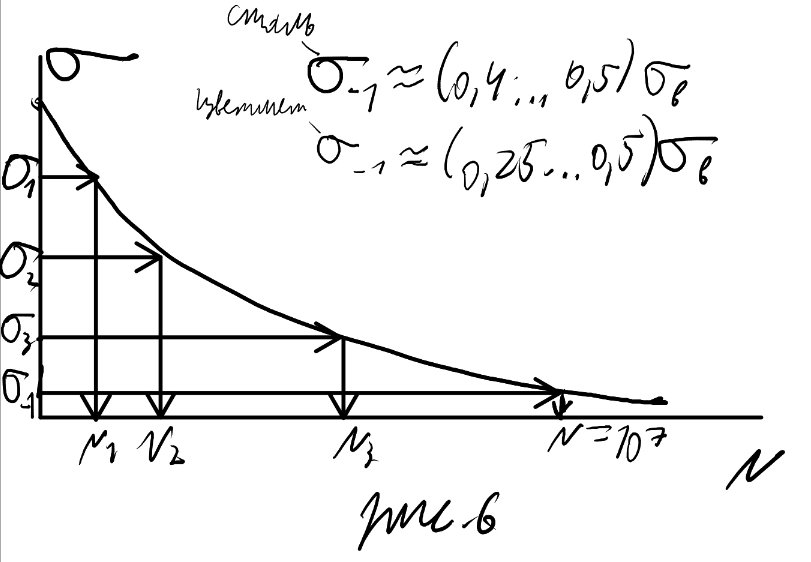 сталь
σ₋₁ ≈ (0,4... 0,5) σв
цветмет
σ₋₁ ≈ (0,25...0,5) σв
σ
σ₁
σ₂
σ₃
σ₋₁
N₁ N₂ N₃ N=10⁷
N
рис.6